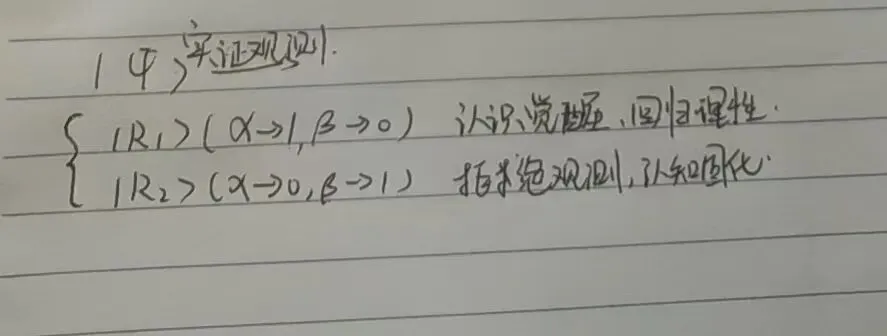 |Ψ> 实证观测.
{ |R₁> (α→1, β→0) 认识觉醒、回归理性.
|R₂> (α→0, β→1) 拒绝观测, 认知固化.